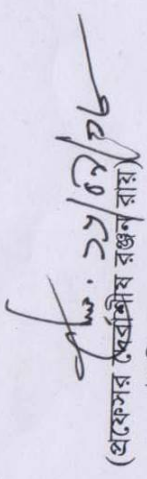 ১৯/০৭/১৮
(প্রফেসর দেবাশীষ রঞ্জন রায়)